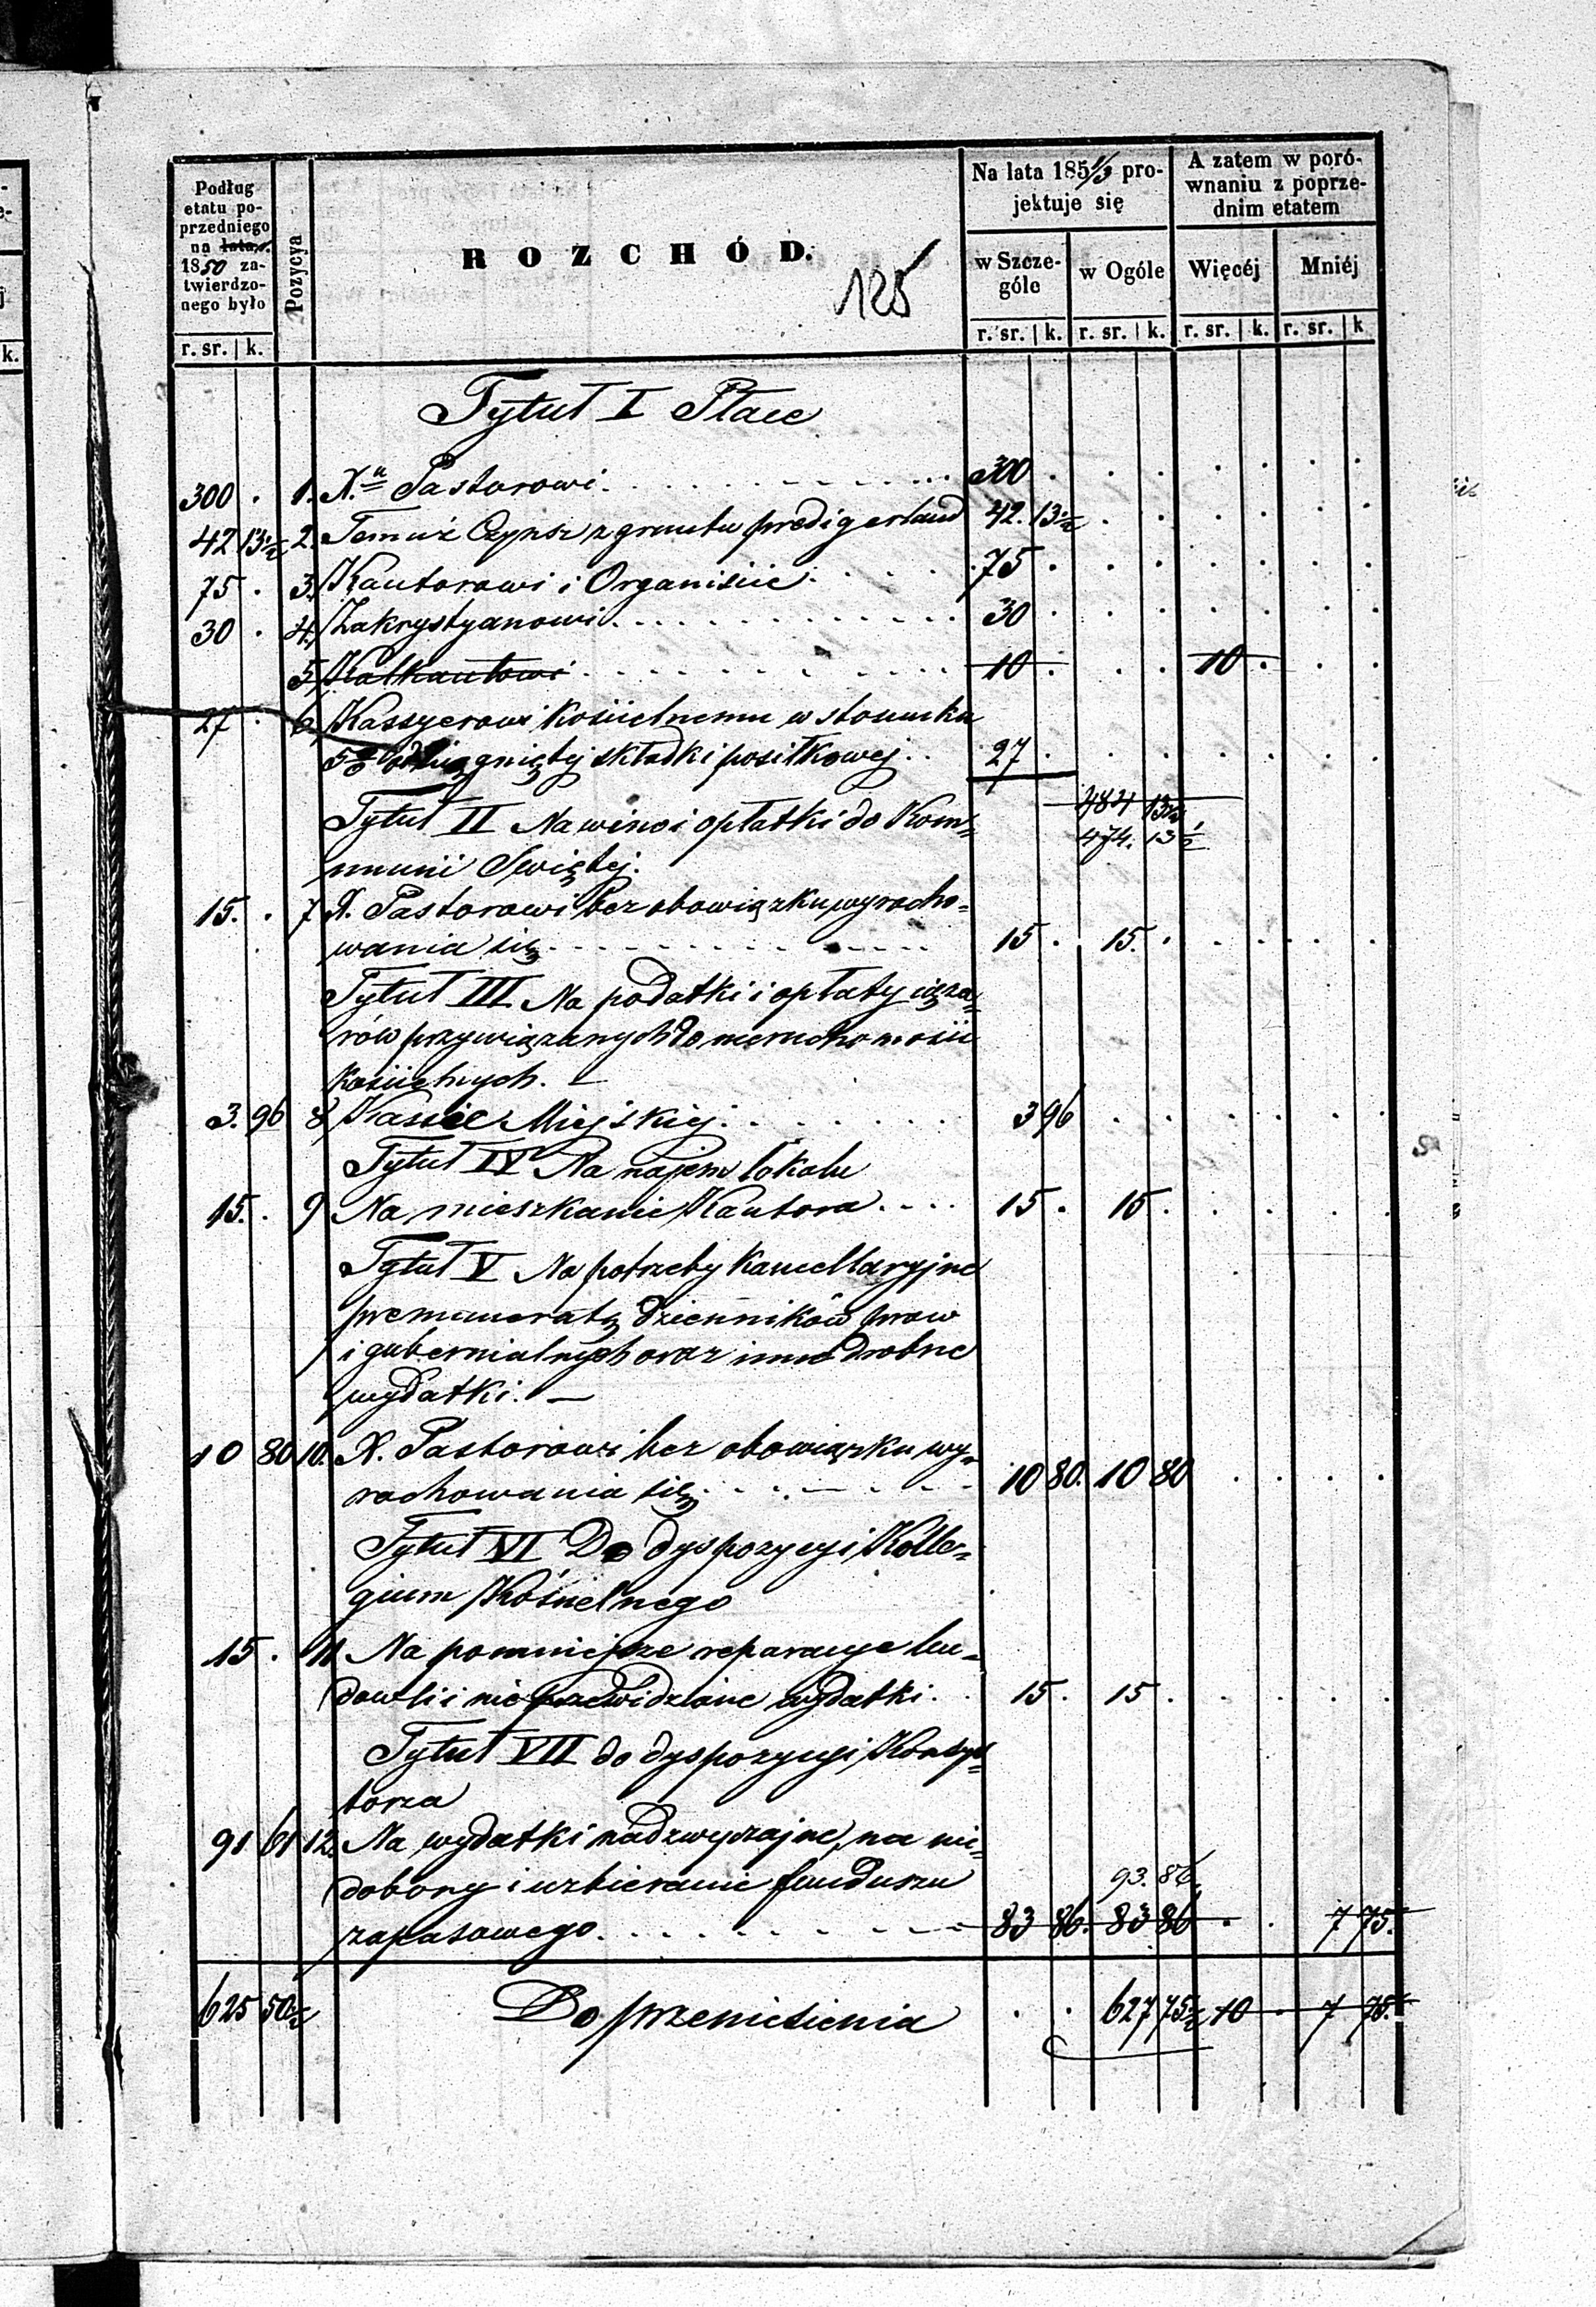 Podług etatu poprzedniego na lata 1850 zatwierdzonego było
Pozycya
R O Z C H Ó D.
125
Na lata 1851/3 projektuje się
w Szczególe
w Ogóle
A zatem w porównaniu z poprzednim etatem
Więcéj
Mniéj
r. sr. | k. r. sr. | k. r. sr. | k. r. sr. | k. r. sr. | k
Tytuł I Płace
300 . 1. X.u Pastorowi . . . 300 .
42 13 1/2 2. Temuż Czynsz z gruntu predigerland 42. 13 1/2
75 . 3. Kantorowi i Organiście . . . 75 .
30 . 4. Zakrystyanowi . . . 30 .
5. Kalkantowi . . . 10 . 10 .
27 . 6. Kassyerowi Kościelnemu w stosunku
5% ściągniętej składki posiłkowej . . 27 .
484 13 1/2
474. 13 1/2
Tytuł II Na wino i opłatki do Kom=
munii Swiętej.
15. . 7 X. Pastorowi bez obowiązku wyracho=
wania się . . . 15 . 15. .
Tytuł III Na podatki i opłaty cięża=
rów przywiązanych do nieruchomości
Kościelnych. —
3. 96 8 Kassie Miejskiej . . . 3 96
Tytuł IV Na najem lokalu
15. . 9 Na mieszkanie Kantora . . . 15 . 15 .
Tytuł V Na potrzeby Kancellaryjne
prenumeratę dzienników praw
i gubernialnych oraz inne drobne
wydatki. —
10 80 10. X. Pastorowi bez obowiązku wy=
rachowania się . . . 10 80. 10 80
Tytuł VI Do dyspozycyi Kolle=
gium Kościelnego
15 . 11 Na pomniejsze reparacye bu=
dowli i nieprzewidziane wydatki . . 15 . 15 .
Tytuł VII do dyspozycyi Konsys=
torza
91 61 12. Na wydatki nadzwyczajne, na nie=
dobory i uzbieranie funduszu
93. 86
zapasowego . . . 83 86. 83 86 . . 7 75.
625 50 1/2 Do przeniesienia . . 627 75 1/2 10 . 7 75.